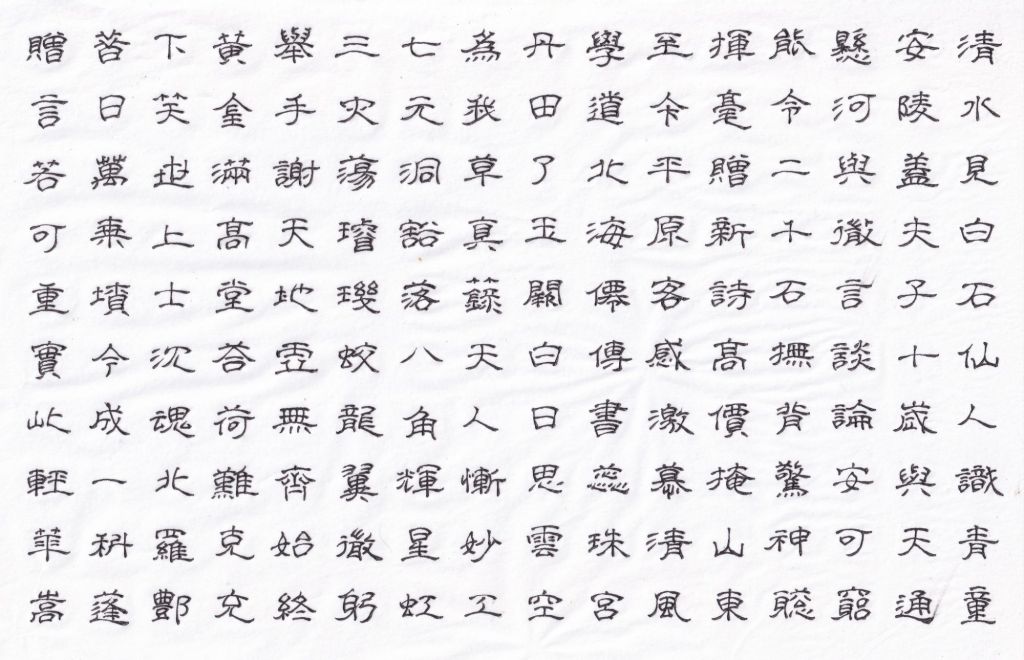 清水見白石仙人識青童
安陵蓋夫子十歲與天通
懸河與微言談論安可窮
能令二千石撫背驚神聰
揮毫贈新詩高價掩山東
至今平原客感激慕清風
學道北海僊傳書蕊珠宮
丹田了玉闕白日思雲空
為我草真籙天人慚妙工
七元洞豁落八角輝星虹
三災蕩璿璣蛟龍翼微躬
舉手謝天地虛無齊始終
黃金滿高堂荅荷難克充
下笑世上士沈魂北羅酆
昔日萬乘墳今成一科蓬
贈言若可重實此輕華嵩